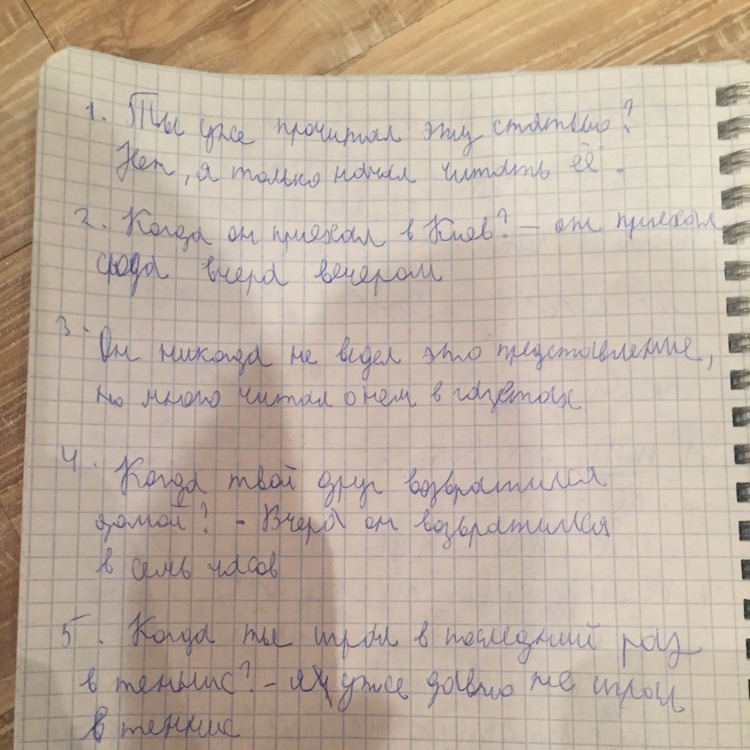 1. Ты уже прочитал эту статью?
Нет, я только начал читать её.
2. Когда он приехал в Киев? – он приехал
сюда вчера вечером
3. Он никогда не видел это представление,
но много читал о нем в газетах
4. Когда твой друг возвратился
домой? – Вчера он возвратился
в семь часов
5. Когда ты играл в последний раз
в теннис? – я уже давно не играл
в теннис